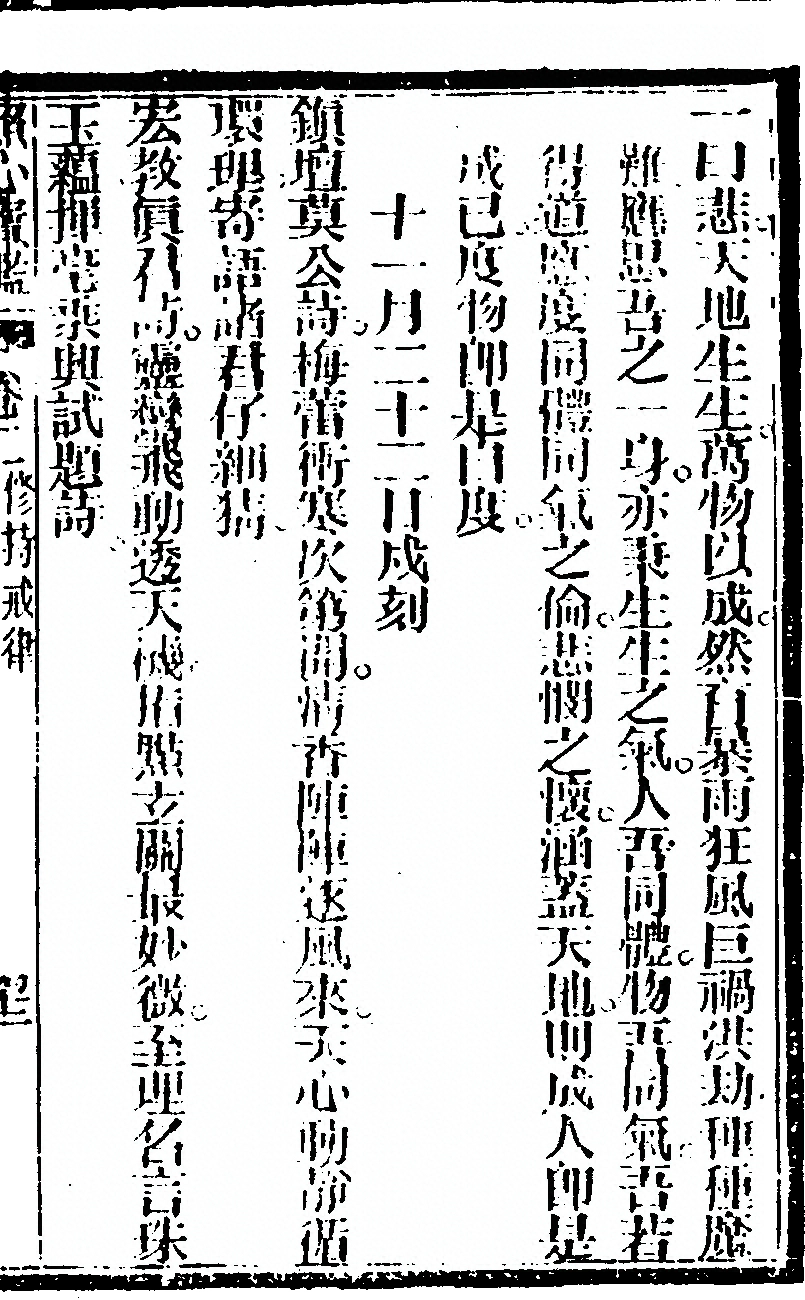 一曰悲天地生生萬物以成然有暴雨狂風巨禍洪劫種種魔
難應思吾之一身亦秉生生之氣人吾同體物吾同氣吾若
得道應度同體同氣之倫悲憫之懷涵蓋天地則成人卽是
成已度物卽是自度
十一月二十二日戍刻
鎭壇莫公詩梅蕾衝寒次第開清香陣陣逐風來天心動靜循
環理寄語諸君仔細猜
宏教眞君詩靈機飛動透天機指點玄關最妙微至理名言珠
玉蘊揮毫乘興試題詩
心 卷二 修持戒律